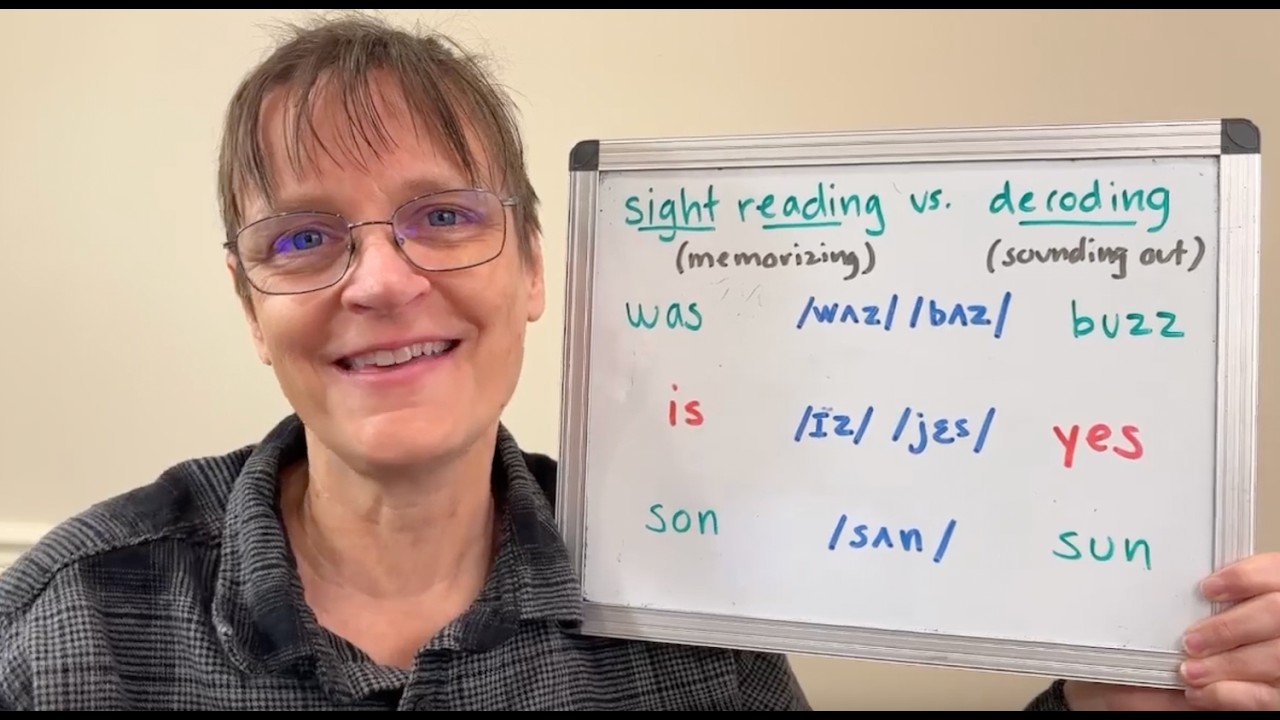 sight reading vs. decoding
(memorizing) (sounding out)
was /wʌz/ /bʌz/ buzz
is /ɪz/ /jɛs/ yes
son /sʌn/ sun